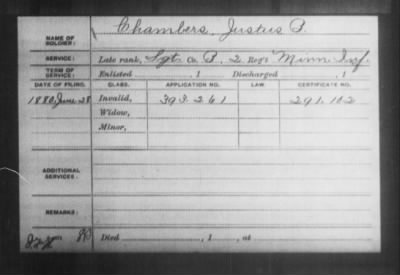 Chambers, Justus B.
NAME OF SOLDIER:
SERVICE: Late rank, Sgt. Co. B, 2 Reg't Minn Inf.
TERM OF SERVICE: Enlisted , 1 Discharged , 1
DATE OF FILING. CLASS. APPLICATION NO. LAW. CERTIFICATE NO.
1880, June 28 Invalid, 393.261 291.102
Widow,
Minor,
ADDITIONAL SERVICES:
REMARKS:
Died , 1 , at